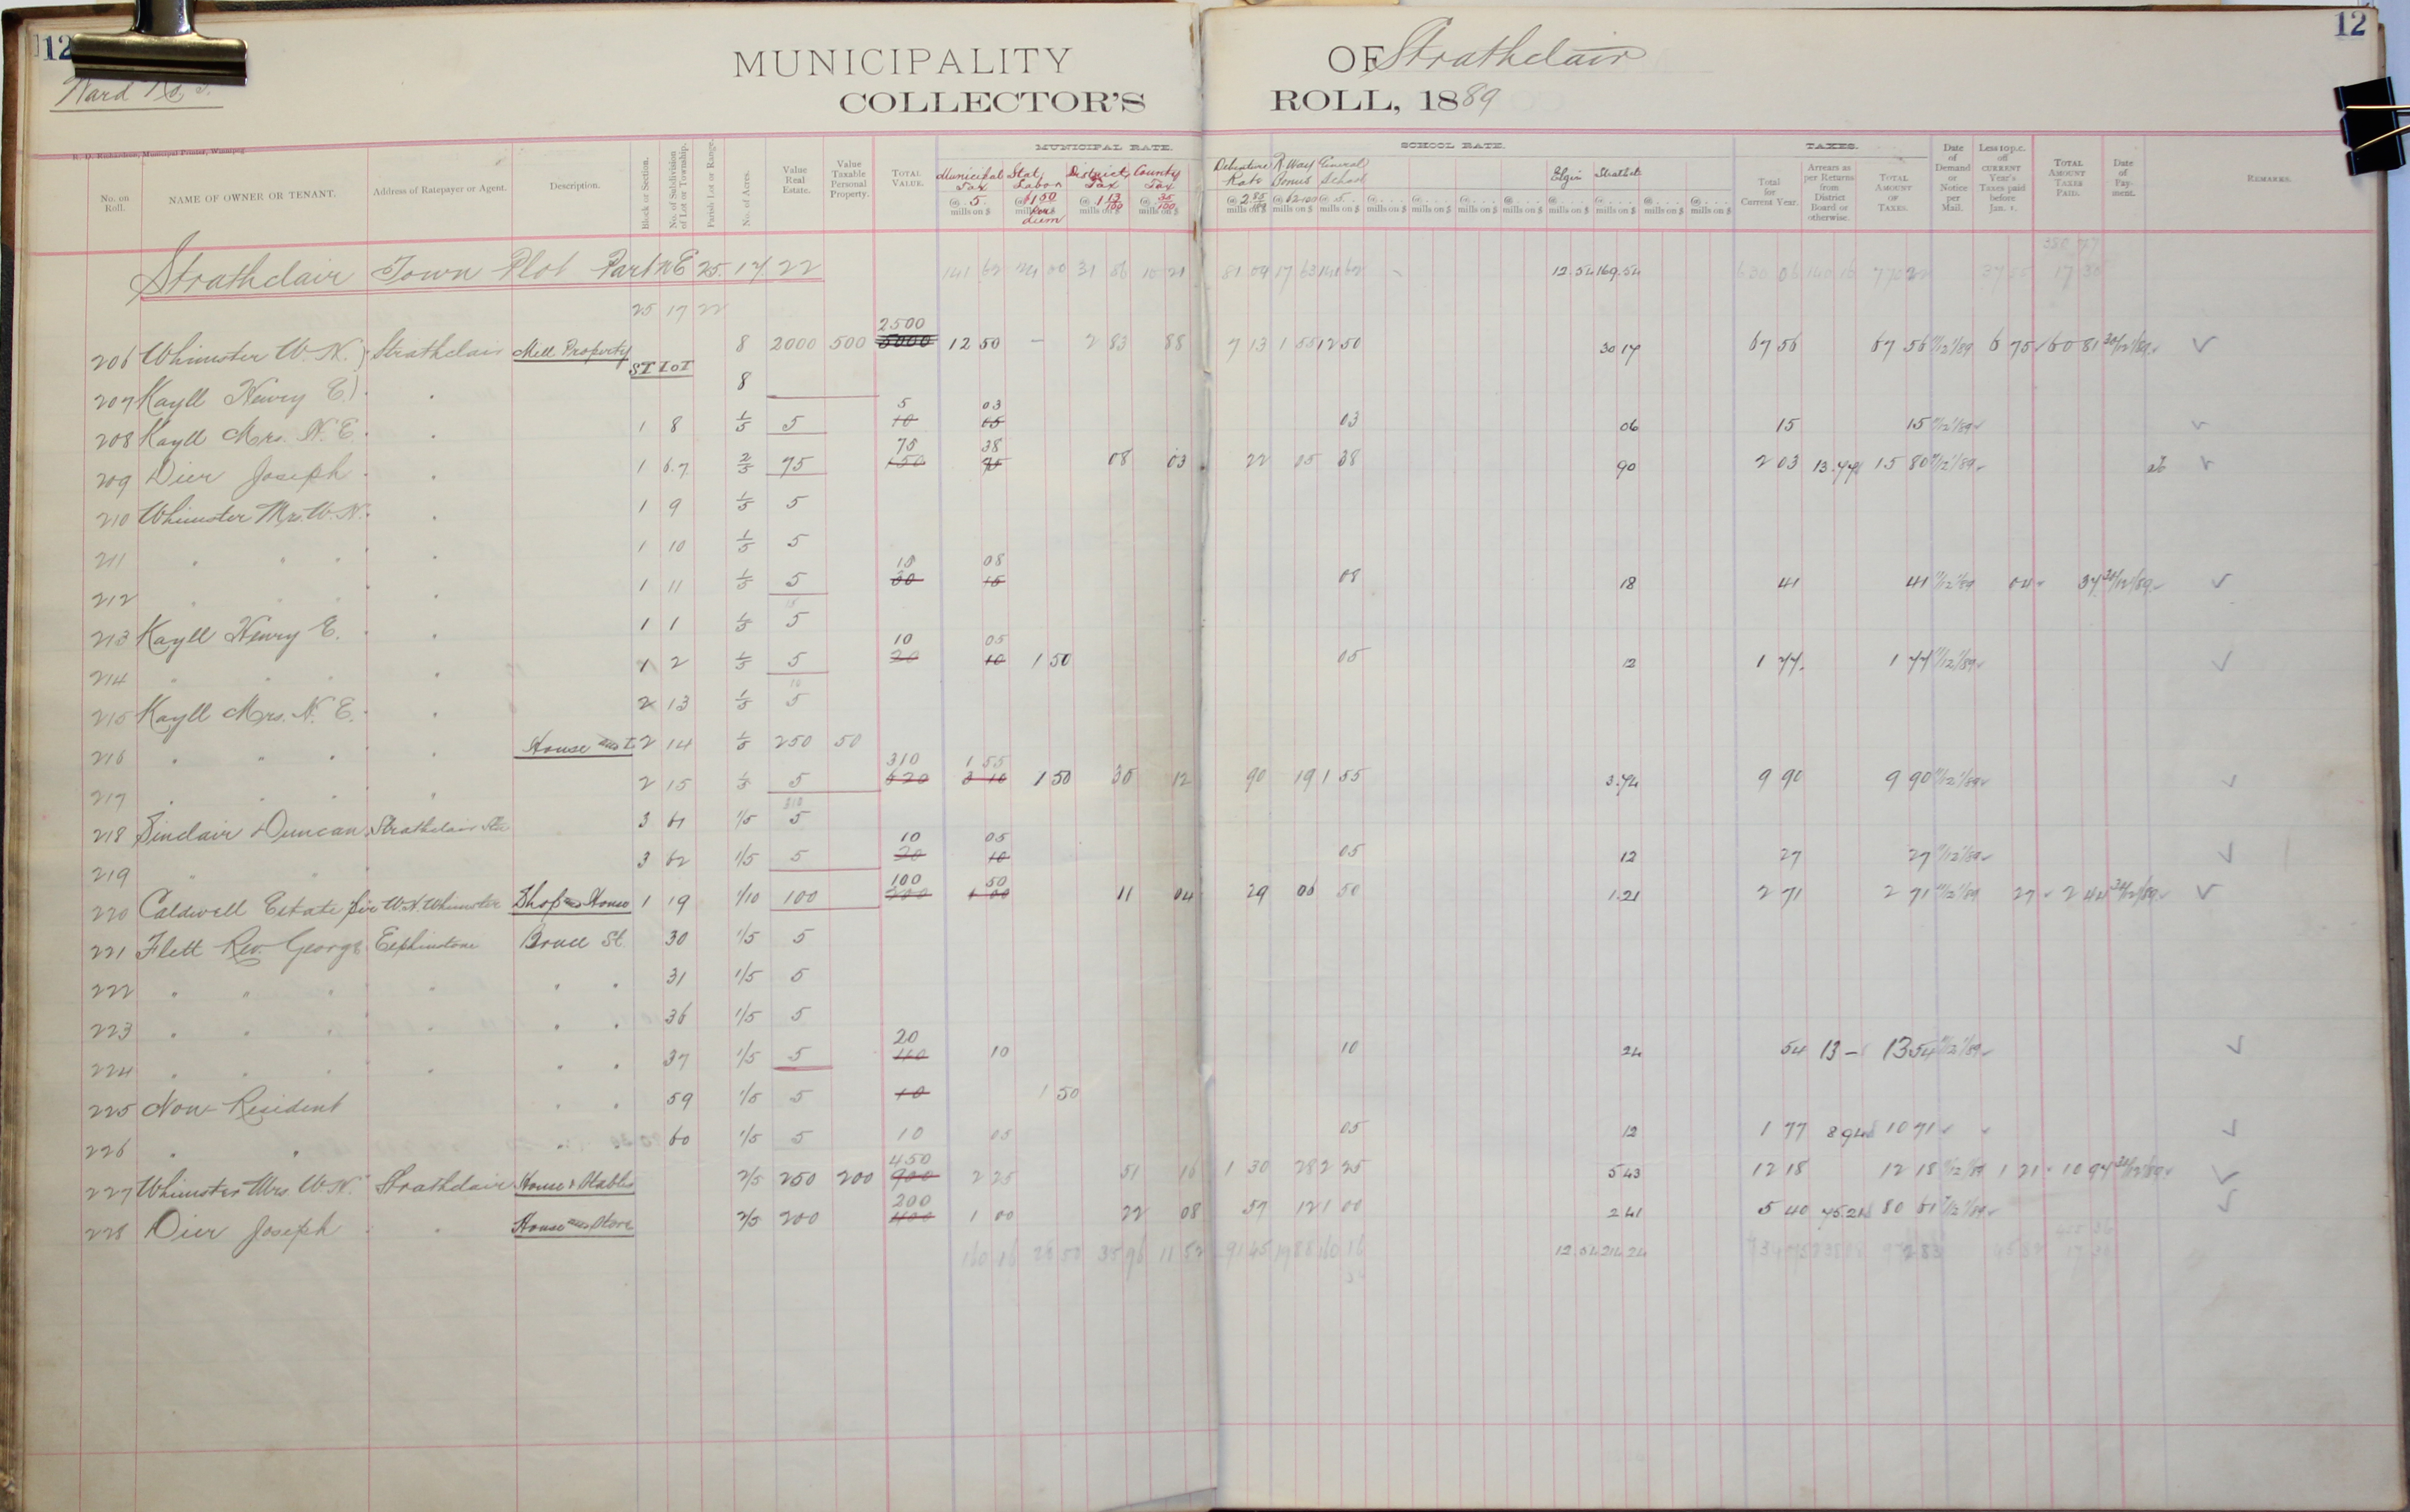 12 12
MUNICIPALITY OF Strathclair
Ward No
COLLECTOR'S ROLL, 1889
R. D. Richardson, Municipal Printer, Winnipeg
MUNICIPAL RATE. SCHOOL RATE. TAXES.
No. on Roll. NAME OF OWNER OR TENANT. Address of Ratepayer or Agent. Description. Block or Section. No. of Subdivision of Lot or Township. Parish Lot or Range. No. of Acres. Value Real Estate. Value Taxable Personal Property. TOTAL VALUE. Municipal Tax @ 5 mills on $ Stat. Labor @ $1 50 per diem District Tax @ 1 13/100 mills on $ County Tax @ 35/100 mills on $ Debenture Rate @ 2 85/100 mills on $ R. Way Bonus General School @ 5 mills on $ Elgin Strathcl Total for Current Year. Arrears as per Returns from District Board or otherwise. TOTAL AMOUNT OF TAXES. Date of Demand or Notice per Mail. Less 10 p.c. off CURRENT Year's Taxes paid before Jan. 1. TOTAL AMOUNT TAXES PAID. Date of Payment. REMARKS.
Strathclair Town Plot Part NE 25. 17. 22 141 62 24 00 31 86 10 21 81 09 17 63 141 62 12.54 169.54 630 06 140 16
25 17 22
206 Whimster W. N. Strathclair Mill Property 8 2000 500 2500 5000 12 50 — 2 83 88 7 13 1 55 12 50 30 17 67 56 67 56 11/12/89 6 75 60 81 30/12/89
ST LOT
207 Kayll Henry E. 8
208 Kayll Mrs. H. E. 1 8 1/5 5 5 10 03 05 03 06 15 15 11/12/89
209 Dier Joseph 1 6.7 2/5 75 75 150 38 75 08 03 22 05 38 90 2 03 13.77 15 80 11/12/89
210 Whimster Mrs. W. N. 1 9 1/5 5
211 " " " 1 10 1/5 5
212 " " " 1 11 1/5 5 15 30 08 15 08 18 41 41 11/12/89 04 37 30/12/89
213 Kayll Henry E. 1 1 1/5 5
214 " " " 1 2 1/5 5 10 20 05 10 1 50 05 12 1 77 1 77 11/12/89
215 Kayll Mrs. H. E. 2 13 1/5 5
216 " " " House and L 2 14 1/5 250 50
217 " " " 2 15 1/5 5 310 620 1 55 3 10 1 50 35 12 90 19 1 55 3.74 9 90 9 90 11/12/89
218 Sinclair Duncan Strathclair Sta 3 61 1/5 5
219 " " 3 62 1/5 5 10 20 05 10 05 12 27 27 11/12/89
220 Caldwell Estate per W. N. Whimster Shop and House 1 19 1/10 100 100 200 50 1 00 11 04 29 06 50 1.21 2 71 2 71 11/12/89 27 2 44 30/12/89
221 Flett Rev. George Elphinstone Bruce St. 30 1/5 5
222 " " " " " " 31 1/5 5
223 " " " " " " 36 1/5 5
224 " " " " " " 37 1/5 5 20 40 10 10 24 54 13 – 13 54 11/12/89
225 Non-Resident " " 59 1/5 5 10 1 50
226 " " " 60 1/5 5 10 05 05 12 1 77 8 94 10 71
227 Whimster Mrs. W. N. Strathclair House & Stables 2/5 250 200 450 900 2 25 51 16 1 30 28 2 25 5 43 12 18 12 18 11/12/89 1 21 10 97 30/12/89
228 Dier Joseph " House and Store 2/5 200 200 400 1 00 22 08 57 12 1 00 2 41 5 40 75 21 80 61 11/12/89
160 16 28 50 35 96 11 52 91 45 19 88 160 16 12.54 214.24